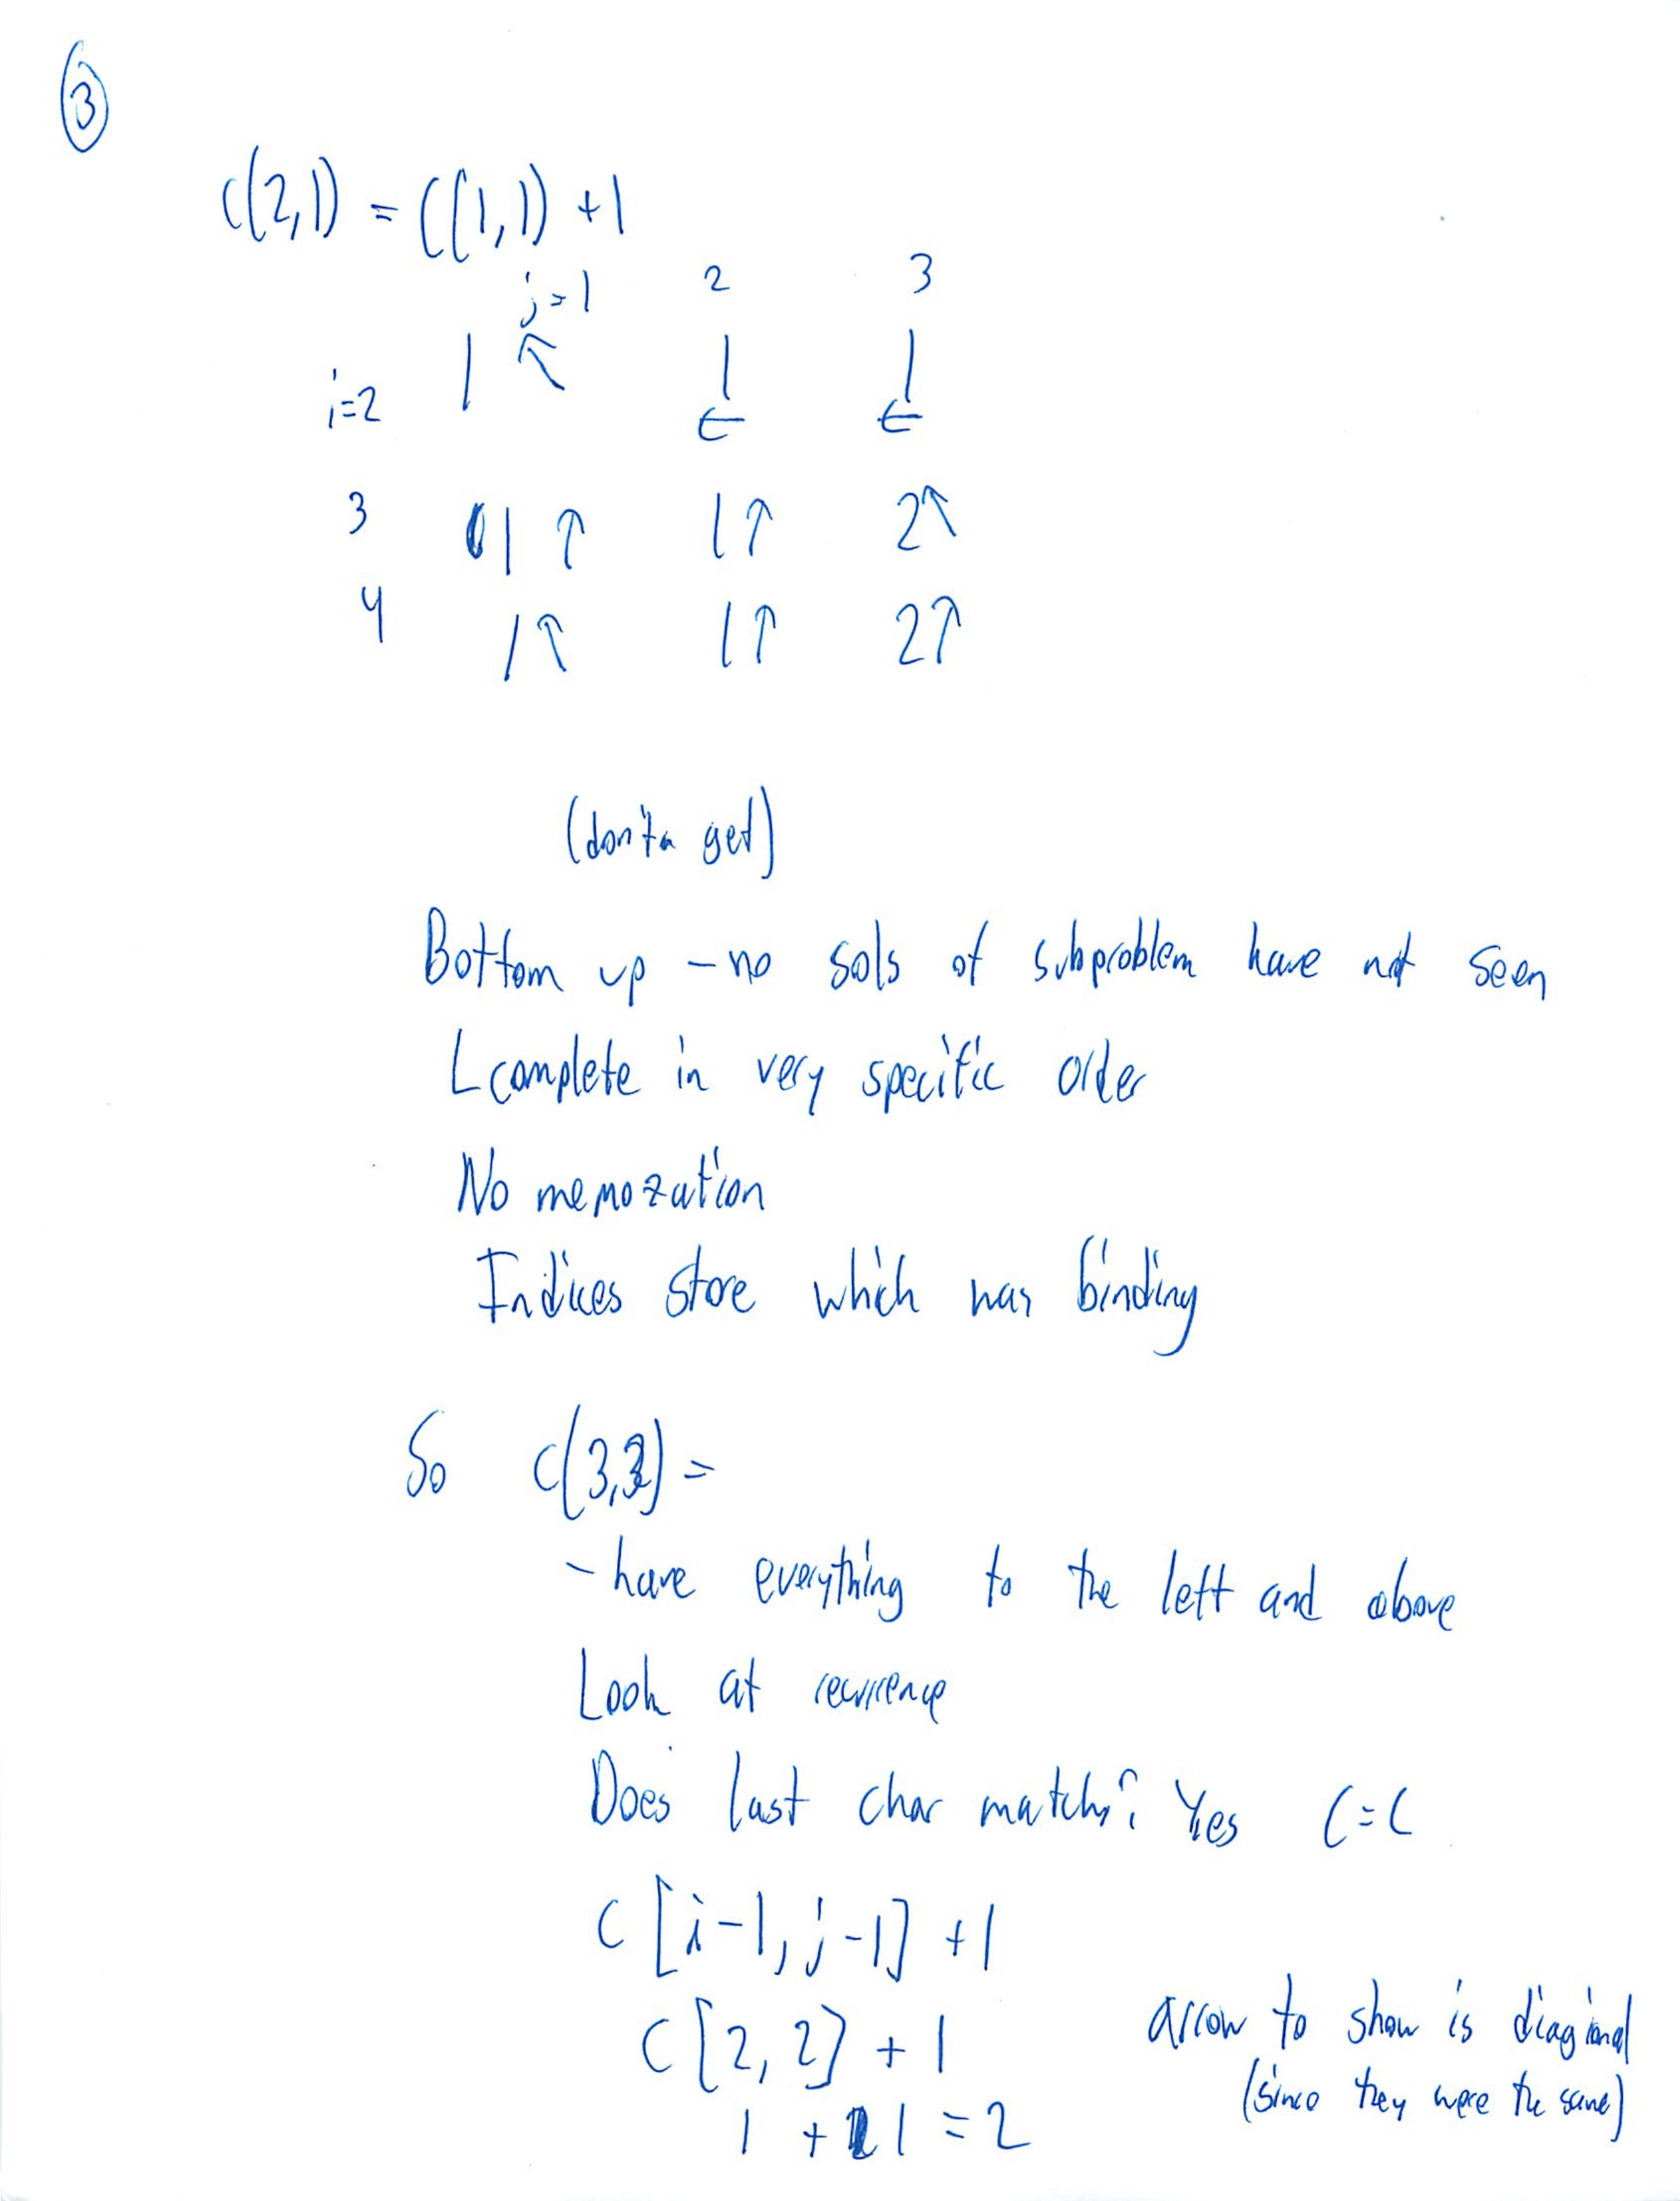 3
C(2,1) = C(1,1) + 1
j=1 2 3
i=2 1 ↖ 1 ← 1 ←
3 1 ↑ 1 ↑ 2 ↖
4 1 ↑ 1 ↑ 2 ↑
(don't get)
Bottom up - no sols of subproblem have not seen
L complete in very specific order
No memozation
Indices store which was binding
So C(3,3) =
- have everything to the left and above
Look at recurrence
Does last char match? Yes C=C
C[i-1, j-1] + 1
C[2, 2] + 1
arrow to show is diagional
(since they were the same)
1 + 1 = 2